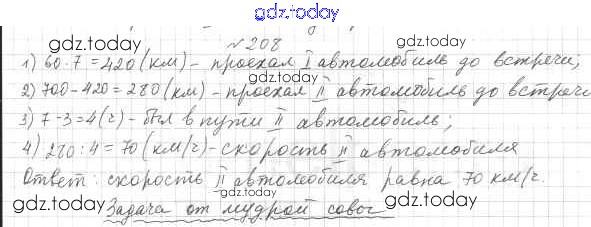 gdz.today
№ 208
gdz.today gdz.today
1) 60 · 7 = 420 (км) - проехал I автомобиль до встречи;
gdz.today
2) 700 - 420 = 280 (км) - проехал II автомобиль до встречи
gdz.today gdz.today
3) 7 - 3 = 4 (ч) - был в пути II автомобиль;
gdz.today
4) 280 : 4 = 70 (км/ч) - скорость II автомобиля
gdz.today
Ответ: скорость II автомобиля равна 70 км/ч.
gdz.today
gdz.today gdz.today
Задача от мудрой совы